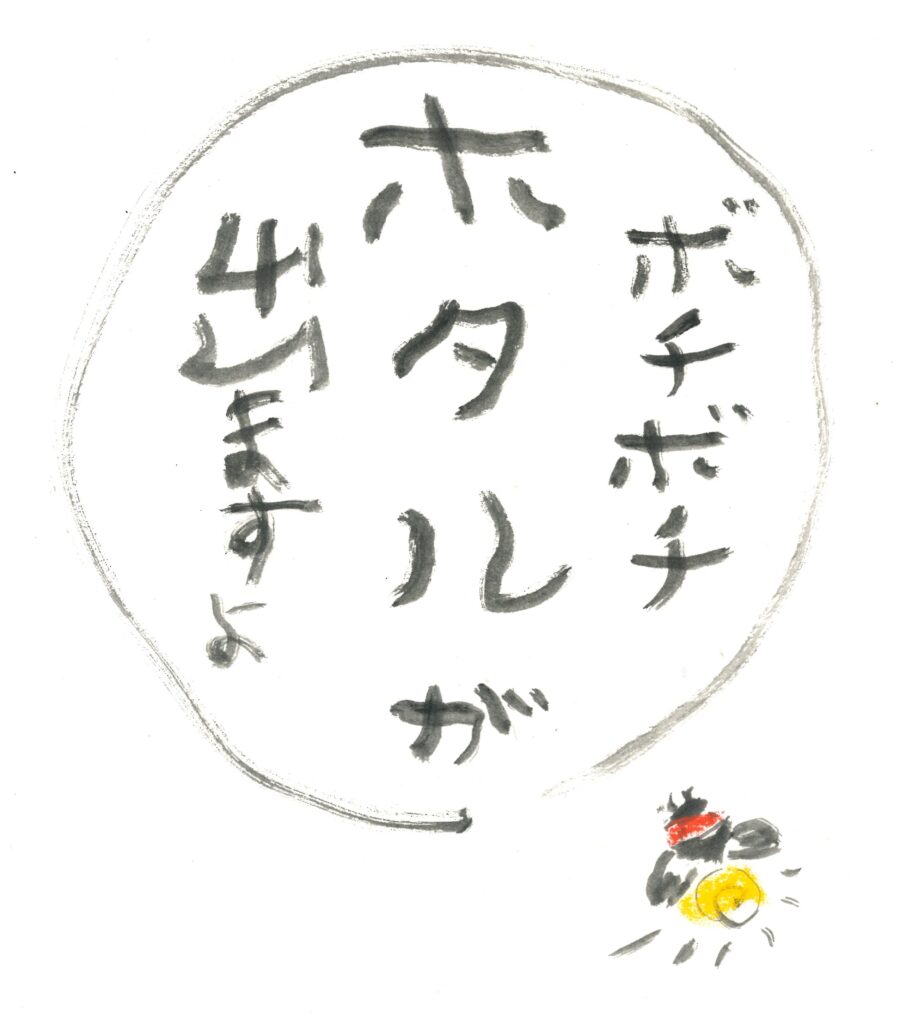 ボチボチ
ホタルが
出ますよ